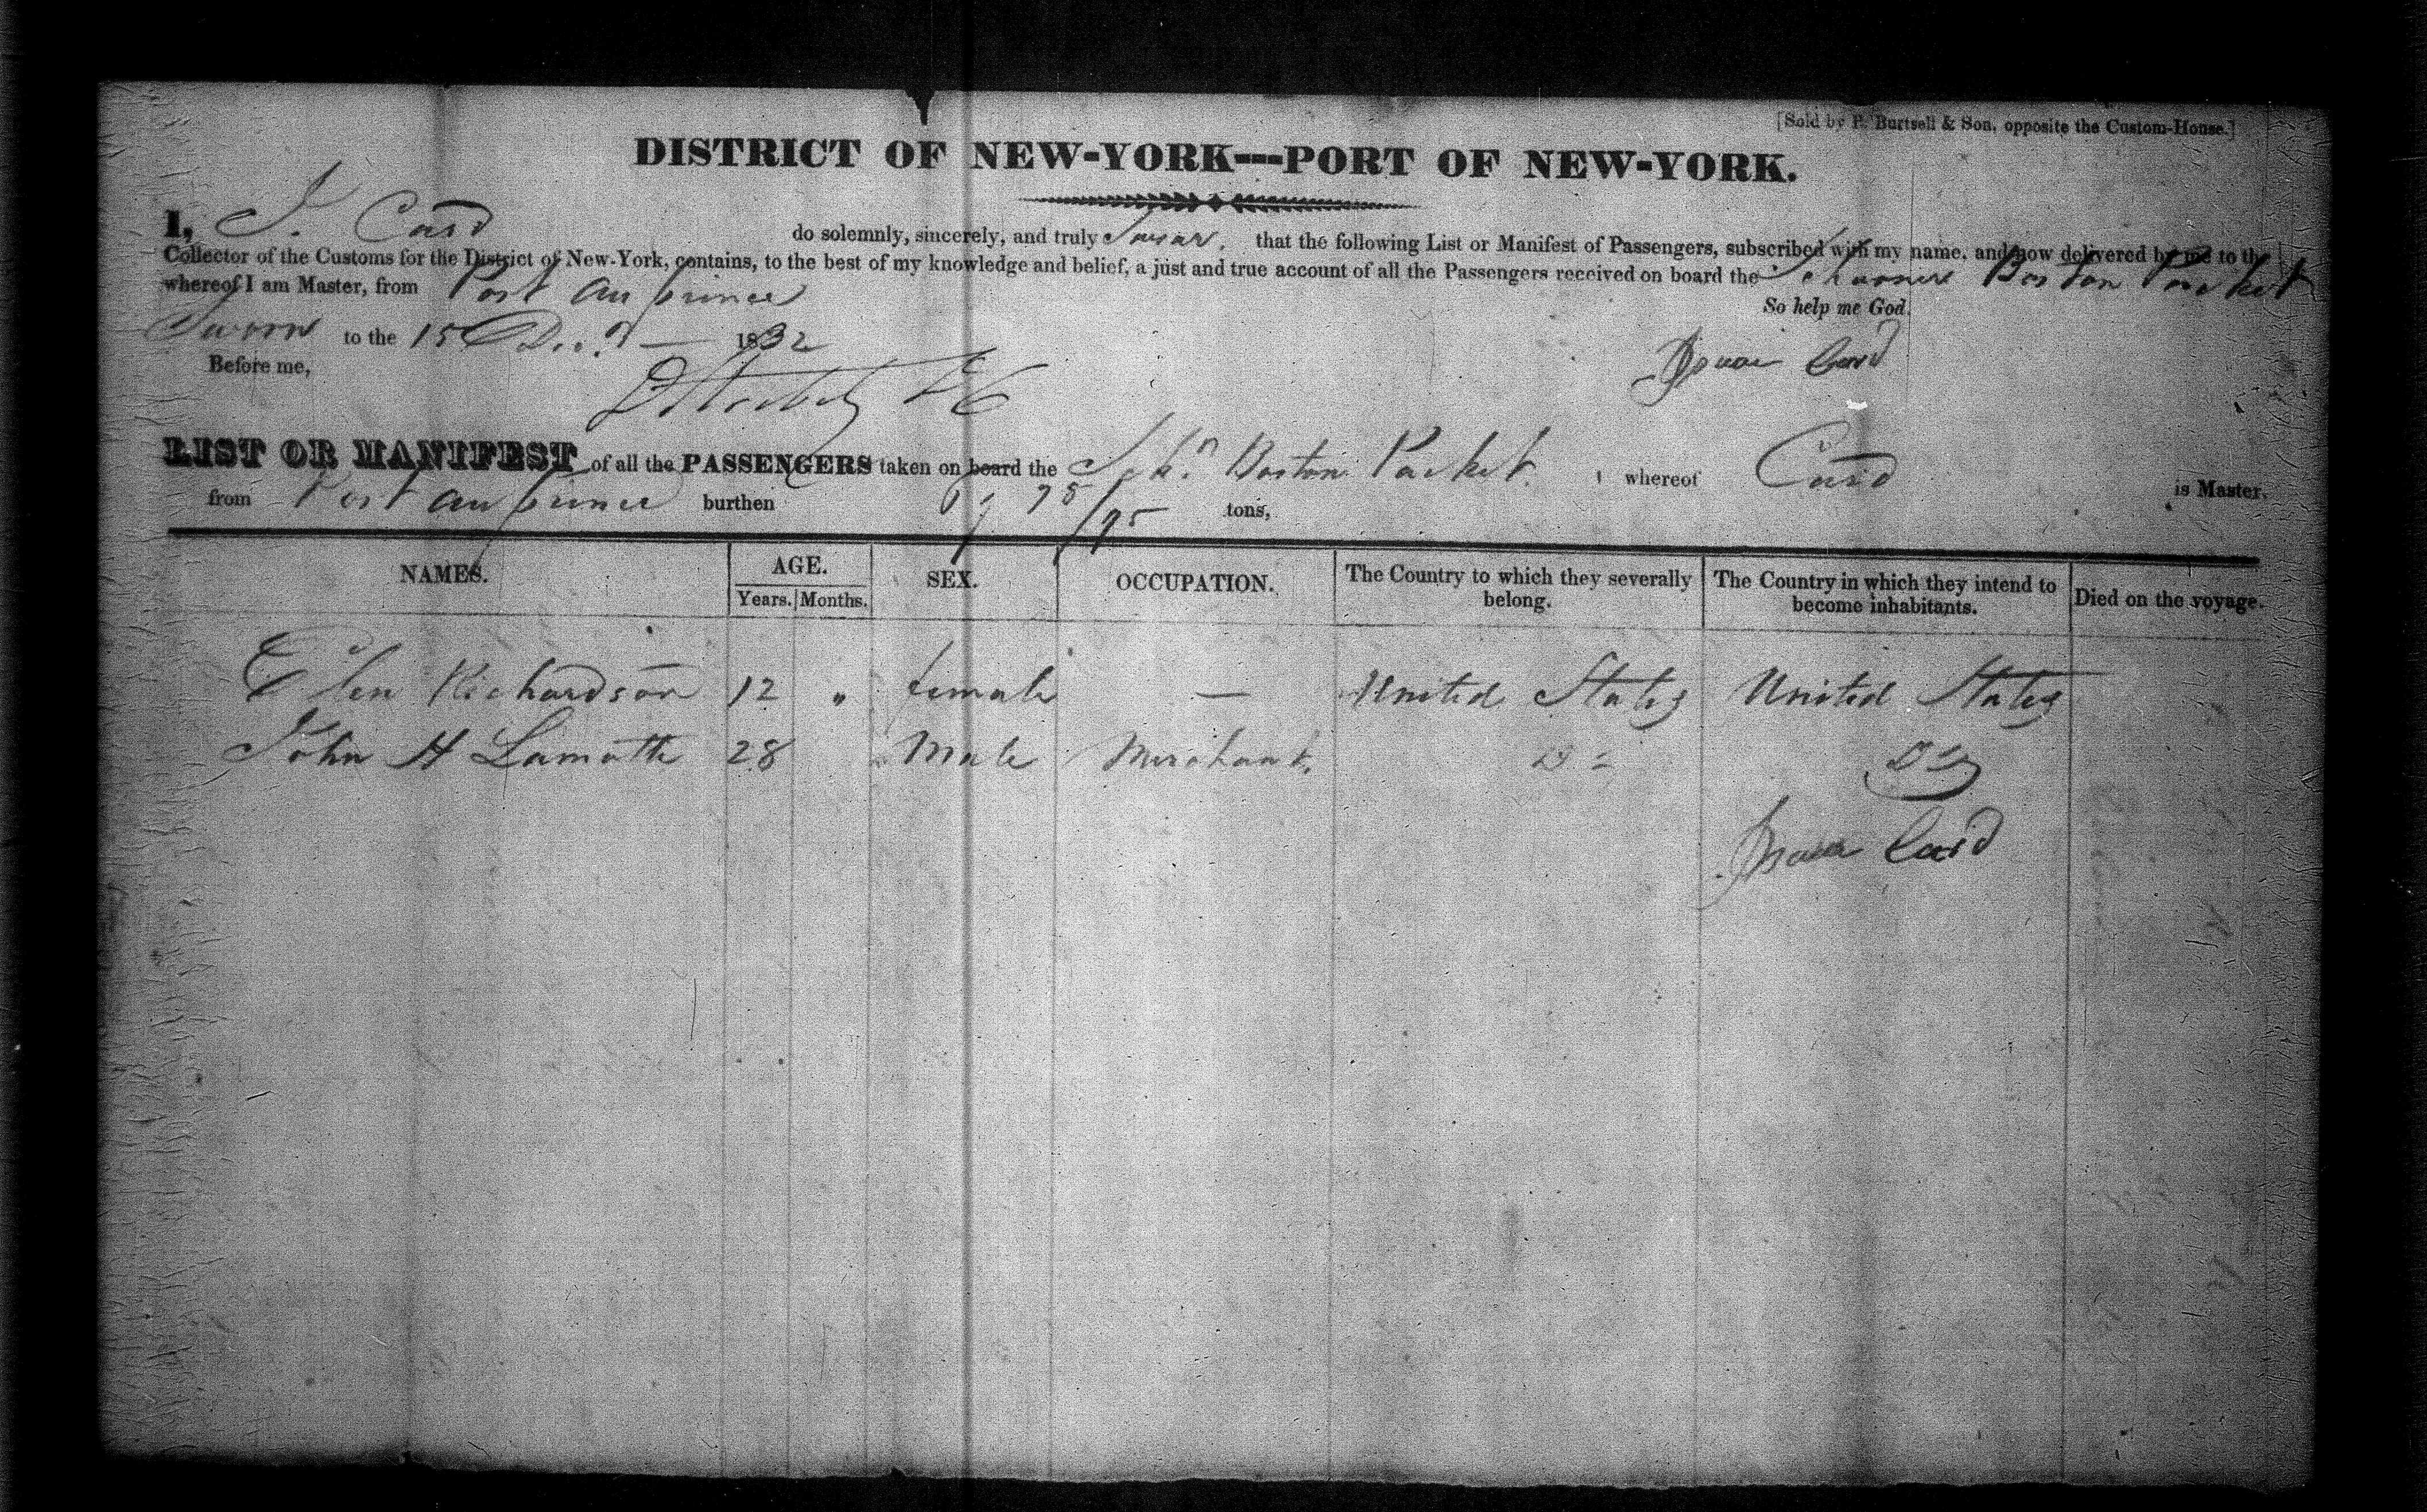 [Sold by P. Burtsell & Son, opposite the Custom-House.]
DISTRICT OF NEW-YORK---PORT OF NEW-YORK.
I, I. Card do solemnly, sincerely, and truly Swear, that the following List or Manifest of Passengers, subscribed with my name, and now delivered by me to the
Collector of the Customs for the District of New-York, contains, to the best of my knowledge and belief, a just and true account of all the Passengers received on board the Schooner Boston Packet
whereof I am Master, from Port au prince
So help me God.
Sworn to the 15 Decr 1832
Isaac Card
Before me,
LIST OR MANIFEST of all the PASSENGERS taken on board the Schr Boston Packet whereof Card is Master,
from Port au prince burthen 75/95 tons,
NAMES. AGE. SEX. OCCUPATION. The Country to which they severally belong. The Country in which they intend to become inhabitants. Died on the voyage.
Years. Months.
Ellen Richardson 12 " female — United States United States
John H Lamotte 28 Male Merchant. Do Do
Isaac Card